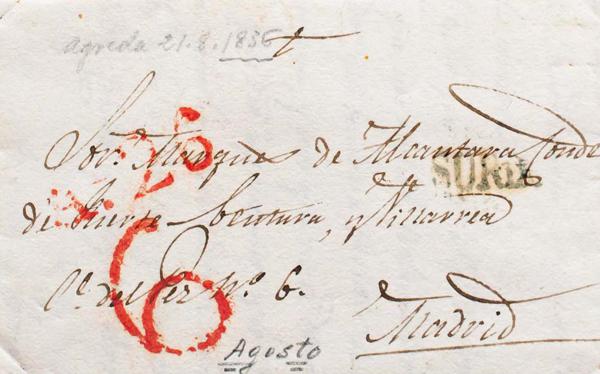 Agreda 21.8.1836
Sor. Marqués de Alcantara Conde
SORIA
de Fuerte Ventura, y Villarrea
Cª del Pez nº 6.
6
Madrid
Agosto